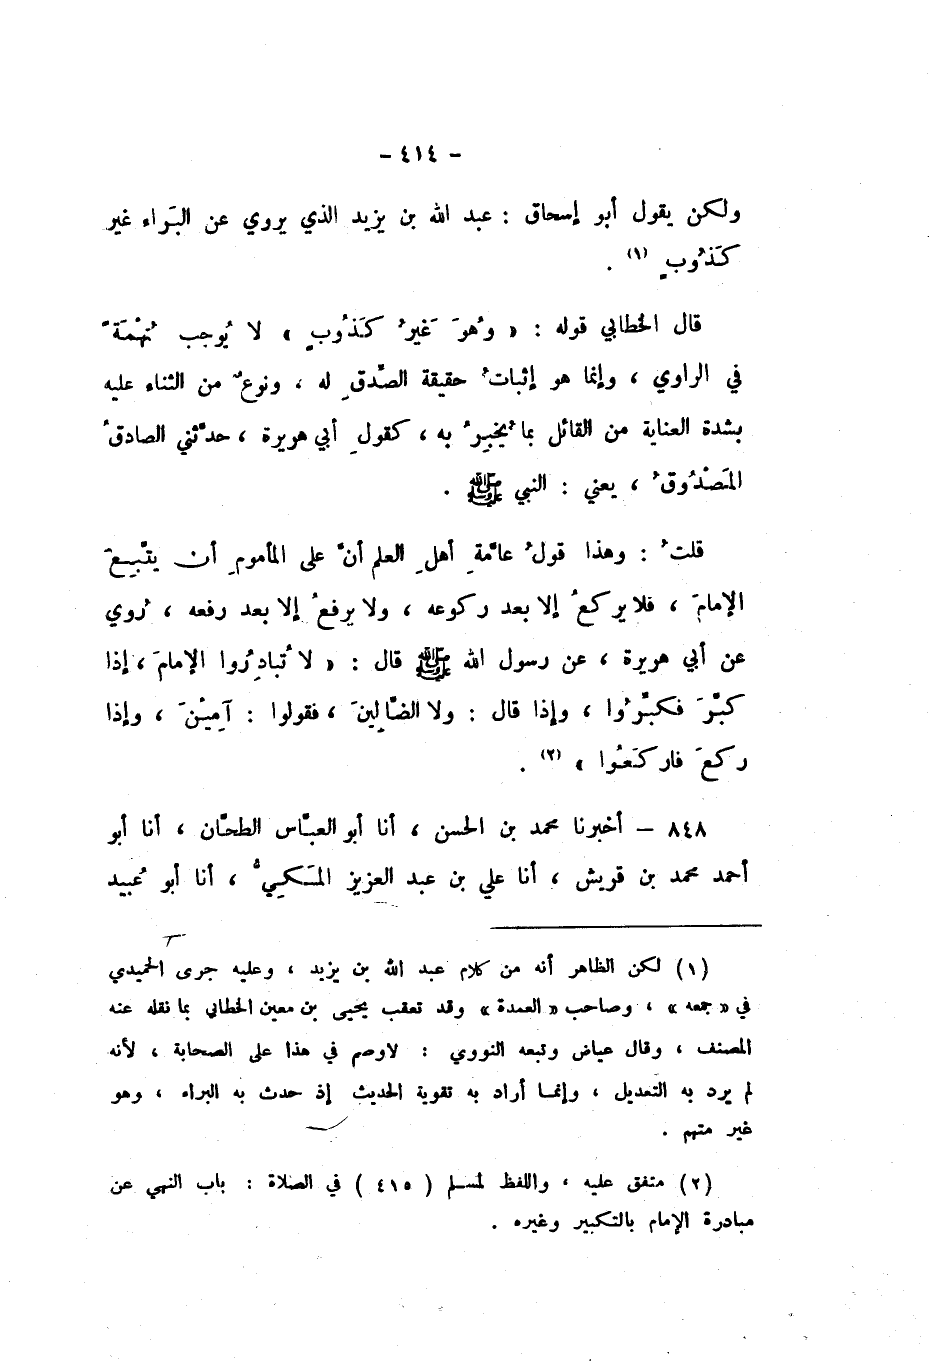 - ٤١٤ -
ولكن يقول أبو إسحاق : عبد الله بن يزيد الذي يروي عن البَراء غير
كَذُوبٍ (١) .
قال الخطابي قوله : « وهُوَ غَيرُ كَذُوبٍ » لا يُوجب تُهْمَةً
في الراوي ، وإنما هو إثباتُ حقيقة الصِّدقِ له ، ونوعٌ من الثناء عليه
بشدة العناية من القائل بما يُخبِرُ به ، كقولِ أبي هريرة ، حدَّثني الصادقُ
المَصْدُوقُ ، يعني : النبي ﷺ .
قلتُ : وهذا قولُ عامَّةِ أهلِ العلم أنَّ على المأمومِ أن يتَّبِعَ
الإمامَ ، فلا يركعُ إلا بعد ركوعه ، ولا يرفعُ إلا بعد رفعه ، رُوي
عن أبي هريرة ، عن رسول الله ﷺ قال : « لا تُبادِرُوا الإمامَ ، إذا
كبَّرَ فكبِّرُوا ، وإذا قال : ولا الضَّالِينَ ، فقولوا : آمِيْنَ ، وإذا
ركعَ فاركَعُوا » (٢) .
٨٤٨ – أخبرنا محمد بن الحسن ، أنا أبو العبَّاس الطحَّان ، أنا أبو
أحمد محمد بن قريش ، أنا علي بن عبد العزيز المَكيُّ ، أنا أبو عُبيد
(١) لكن الظاهر أنه من كلام عبد الله بن يزيد ، وعليه جرى الحميدي
في « جمعه » ، وصاحب « العمدة » وقد تعقب يحيى بن معين الخطابي بما نقله عنه
المصنف ، وقال عياض وتبعه النووي : لاوصم في هذا على الصحابة ، لأنه
لم يرد به التعديل ، وإنما أراد به تقوية الحديث إذ حدث به البراء ، وهو
غير متهم .
(٢) متفق عليه ، واللفظ لمسلم ( ٤١٥ ) في الصلاة : باب النهي عن
مبادرة الإمام بالتكبير وغيره .